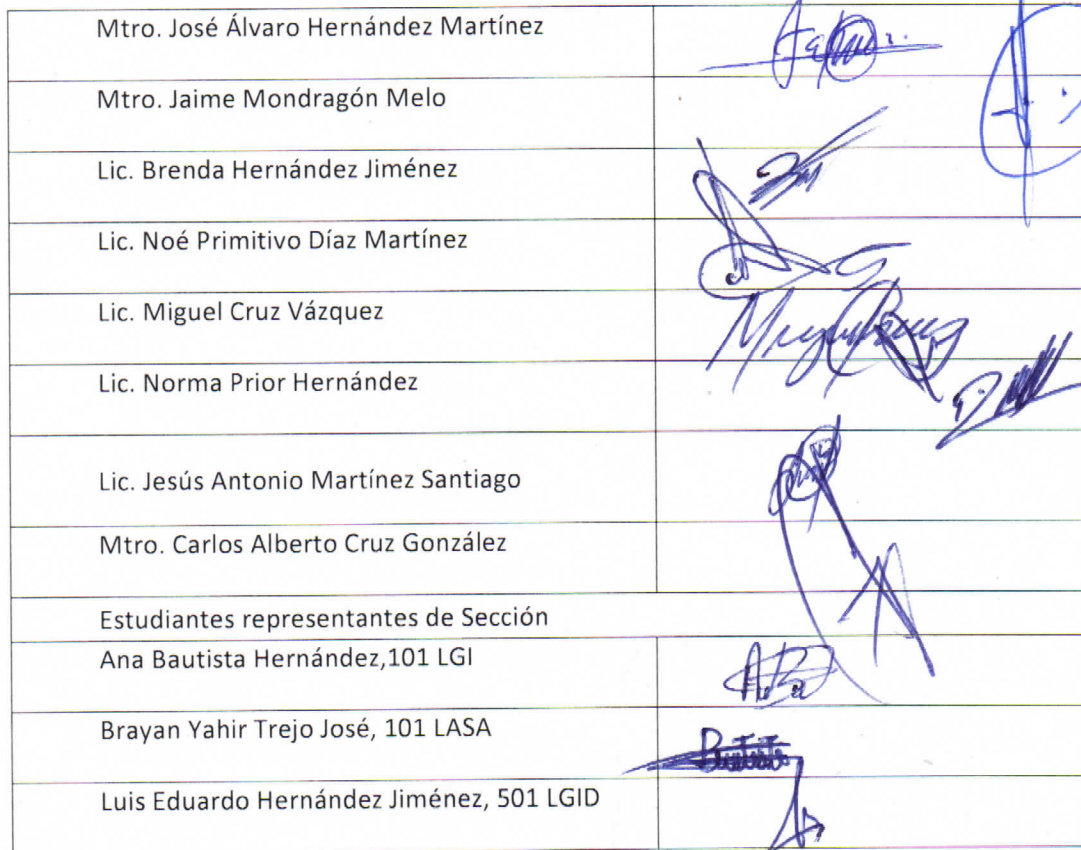 Mtro. José Álvaro Hernández Martínez
Mtro. Jaime Mondragón Melo
Lic. Brenda Hernández Jiménez
Lic. Noé Primitivo Díaz Martínez
Lic. Miguel Cruz Vázquez
Lic. Norma Prior Hernández
Lic. Jesús Antonio Martínez Santiago
Mtro. Carlos Alberto Cruz González
Estudiantes representantes de Sección
Ana Bautista Hernández,101 LGI
Brayan Yahir Trejo José, 101 LASA
Luis Eduardo Hernández Jiménez, 501 LGID